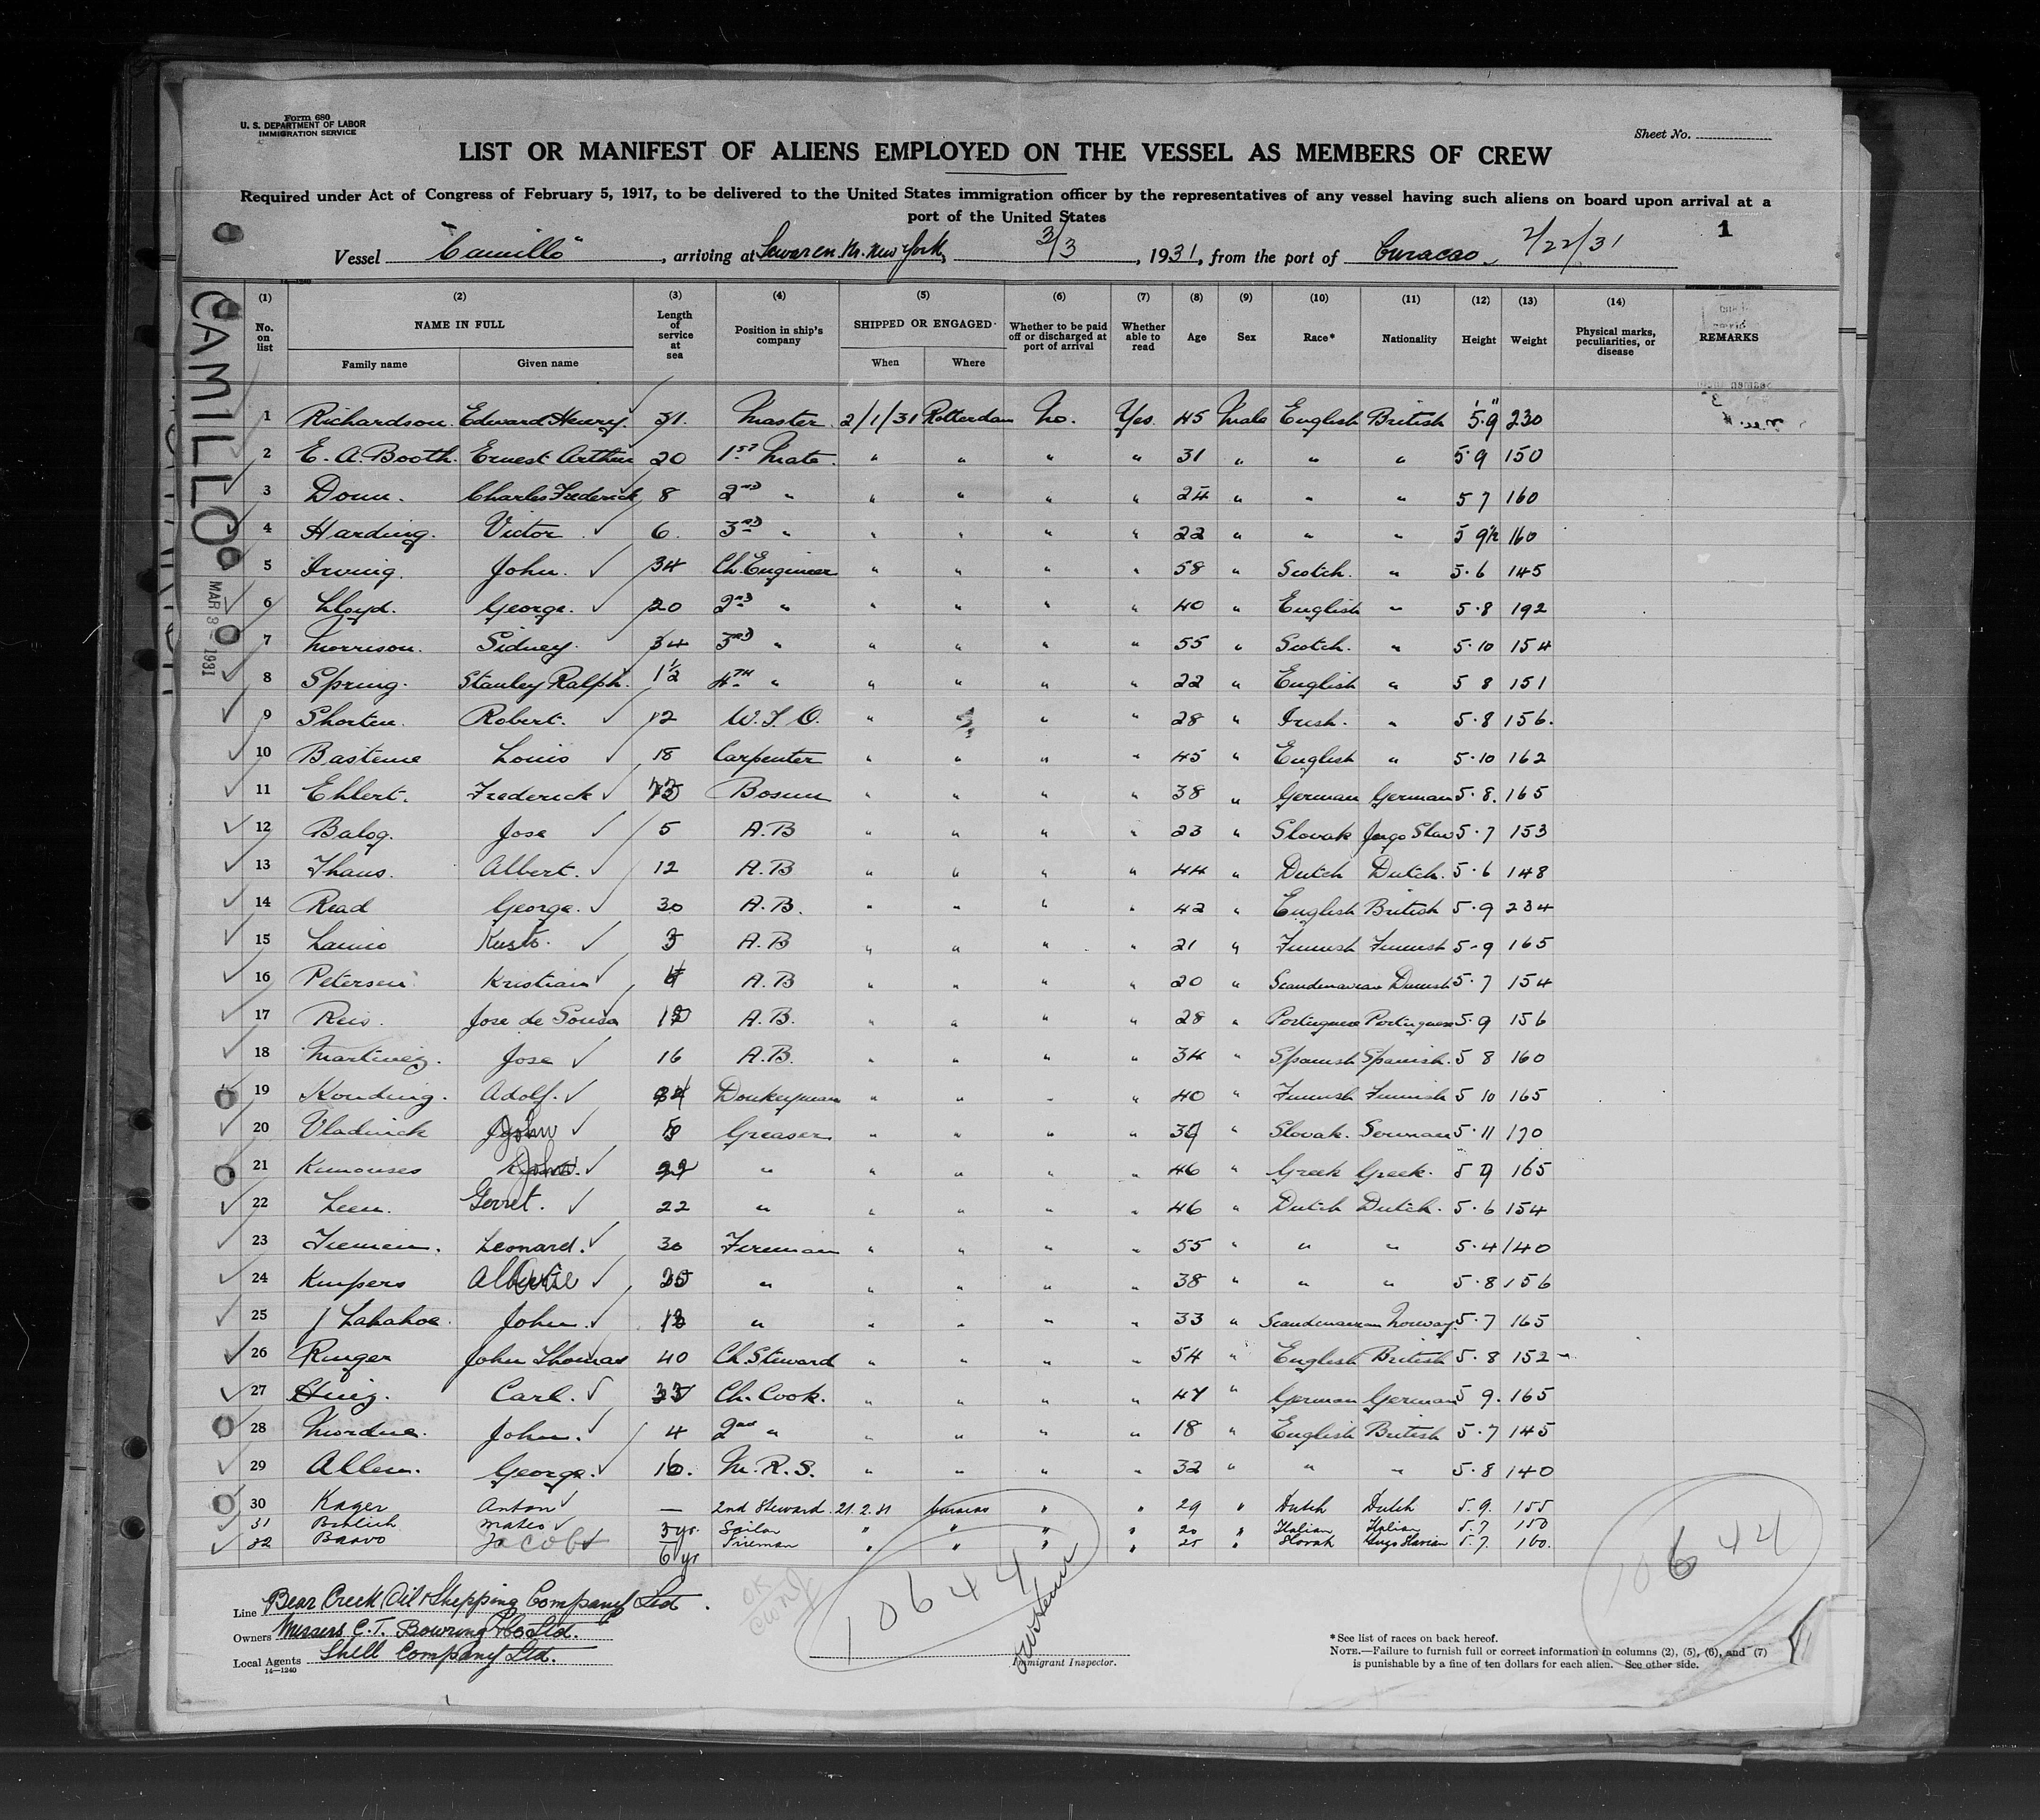 Form 680
U. S. DEPARTMENT OF LABOR
IMMIGRATION SERVICE
Sheet No.
LIST OR MANIFEST OF ALIENS EMPLOYED ON THE VESSEL AS MEMBERS OF CREW
Required under Act of Congress of February 5, 1917, to be delivered to the United States immigration officer by the representatives of any vessel having such aliens on board upon arrival at a
port of the United States
1
Vessel "Camillo", arriving at Sewaren Nr. New York, 3/3, 1931, from the port of Curacao 2/22/31
14—1240
CAMILLO
MAR 3 - 1931
(1) (2) (3) (4) (5) (6) (7) (8) (9) (10) (11) (12) (13) (14)
No. on list NAME IN FULL Family name Given name Length of service at sea Position in ship's company SHIPPED OR ENGAGED When Where Whether to be paid off or discharged at port of arrival Whether able to read Age Sex Race* Nationality Height Weight Physical marks, peculiarities, or disease REMARKS
1 Richardson. Edward Henry. 31. Master. 2/1/31 Rotterdam No. Yes. 45 Male English British 5'9" 230
2 E. A. Booth. Ernest Arthur 20 1st Mate. " " " " 31 " " " 5.9 150
3 Charles Frederick 8 2nd " " " " " 24 " " " 5 7 160
4 Harding. Victor. 6. 3rd " " " " " 22 " " " 5 9½ 160
5 Irving. John. 34 Ch. Engineer " " " " 58 " Scotch. " 5.6 145
6 Lloyd. George. 20 2nd " " " " " 40 " English " 5.8 192
7 Morrison. Sidney. 34 3rd " " " " " 55 " Scotch. " 5.10 154
8 Spring. Stanley Ralph. 1½ 4th " " " " " 22 " English " 5 8 151
9 Shorten. Robert. 12 W.T.O. " " " " 28 " Irish. " 5.8 156.
10 Louis 18 Carpenter " " " " 45 " English " 5.10 162
11 Ehlert. Frederick Bosun " " " " 38 " German German 5.8. 165
12 Balog. Jose 5 A.B " " " " 23 " Slovak Jugo Slav 5.7 153
13 Thans. Albert. 12 A.B " " " " 44 " Dutch Dutch. 5.6 148
14 Read George. 30 A.B. " " " " 42 " English British 5.9 234
15 Kusto. 3 A.B " " " " 21 " Finnish Finnish 5-9 165
16 Petersen Kristian 4 A.B " " " " 20 " Scandinavian Danish 5.7 154
17 Reis. Jose de Sousa A.B. " " " " 28 " Portuguese Portuguese 5.9 156
18 Martinez. Jose 16 A.B. " " " " 34 " Spanish Spanish. 5 8 160
19 Adolf. Donkeyman " " " " 40 " Finnish Finnish 5 10 165
20 Vladinick John Greaser " " " " " Slovak. 5.11 170
21 Kimouses John " " " " " 46 " Greek Greek. 5 9 165
22 Leen. Gerret. 22 " " " " " 46 " Dutch Dutch. 5.6 154
23 Leonard. 30 Fireman " " " " 55 " " " 5.4 140
24 Kuipers " " " " " 38 " " " 5.8 156
25 John. " " " " " 33 " Scandinavian Norway. 5.7 165
26 Ringer John Thomas 40 Ch. Steward " " " " 54 " English British 5.8 152
27 Carl. Ch. Cook. " " " " 47 " German German 5 9. 165
28 Mordue. John. 4 2nd " " " " " 18 " English British 5.7 145
29 Allen. George. 16. M.R.S. " " " " 32 " " " 5.8 140
30 Kager Anton — 2nd Steward. 21.2.31 Curacao " " 29 " Dutch Dutch 5.9. 155
31 Mateo 3 yr. Sailor " " " " 20 " Italian Italian 5.7 150
32 Bravo Jacob 6 yr Fireman " " " " 25 " Slovak Jugo Slavian 5.7. 160.
10644
10644
Line Bear Creek Oil & Shipping Company Ltd.
Owners Messrs C. T. Bowring & Co Ltd.
Local Agents Shell Company Ltd.
14—1240
Immigrant Inspector.
*See list of races on back hereof.
NOTE.—Failure to furnish full or correct information in columns (2), (5), (6), and (7)
is punishable by a fine of ten dollars for each alien. See other side.